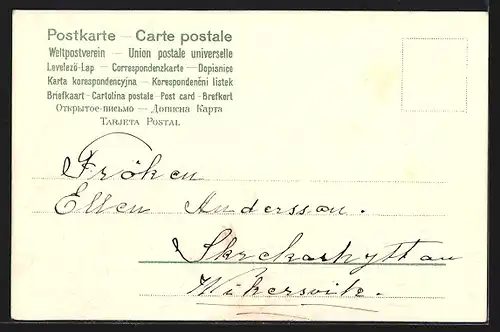 Postkarte – Carte postale
Weltpostverein – Union postale universelle
Levelező-Lap – Correspondenzkarte – Dopisnice
Karta korespondencyjna – Korespondenční lístek
Briefkaart – Cartolina postale – Post card – Brefkort
Открытое-письмо – Дописна Карта
Tarjeta Postal
Fröken
Ellen Andersson.
Skrckashyttan
Wikersvik.